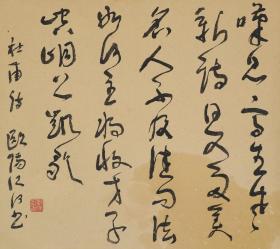 嘆息高生老
新詩日又多美
名人不及佳句法
如何主將收才子
崆峒足凱歌
杜甫詩 歐陽江河書